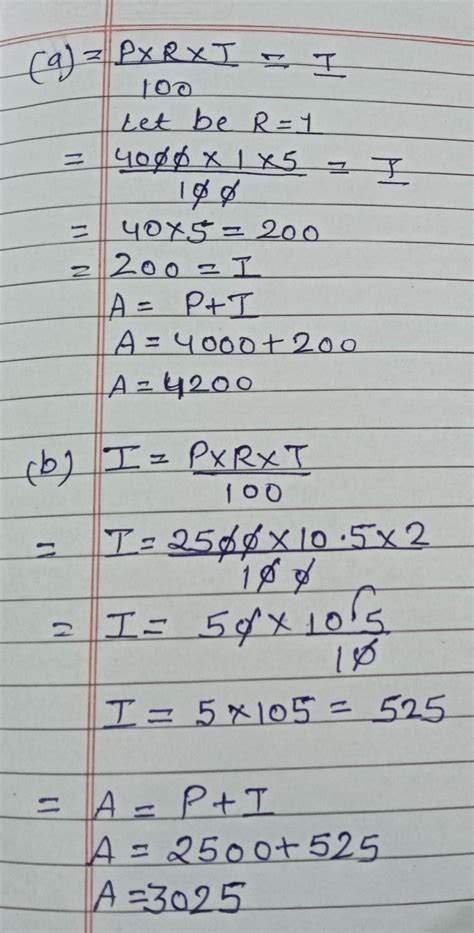 (a) = P×R×T/100 = I
Let be R = 1
= 4000 × 1 × 5/100 = I
= 40×5 = 200
= 200 = I
A = P+I
A = 4000+200
A = 4200
(b) I = P×R×T/100
= I = 2500×10.5×2/100
= I = 50×10.5/10
I = 5×105 = 525
= A = P+I
A = 2500+525
A = 3025